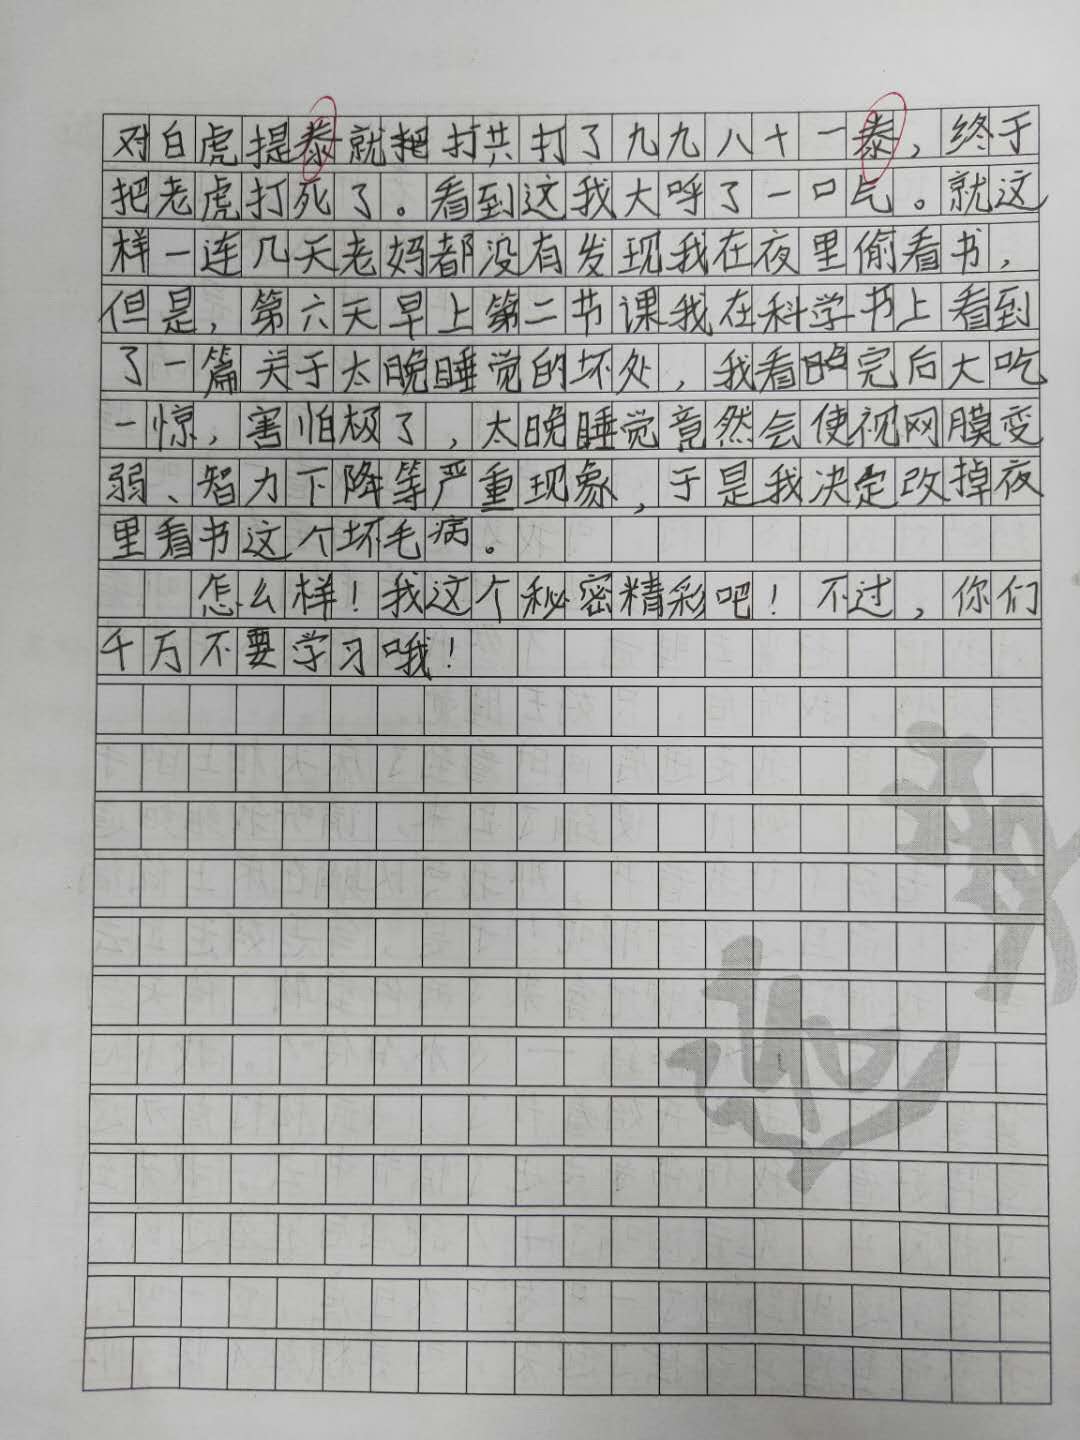 对白虎提泰就把打共打了九九八十一泰，终于
把老虎打死了。看到这我大呼了一口气。就这
样一连几天老妈都没有发现我在夜里偷看书，
但是，第六天早上第二节课我在科学书上看到
了一篇关于太晚睡觉的坏处，我看完后大吃
一惊，害怕极了，太晚睡觉竟然会使视网膜变
弱、智力下降等严重现象，于是我决定改掉夜
里看书这个坏毛病。
怎么样！我这个秘密精彩吧！不过，你们
千万不要学习哦！